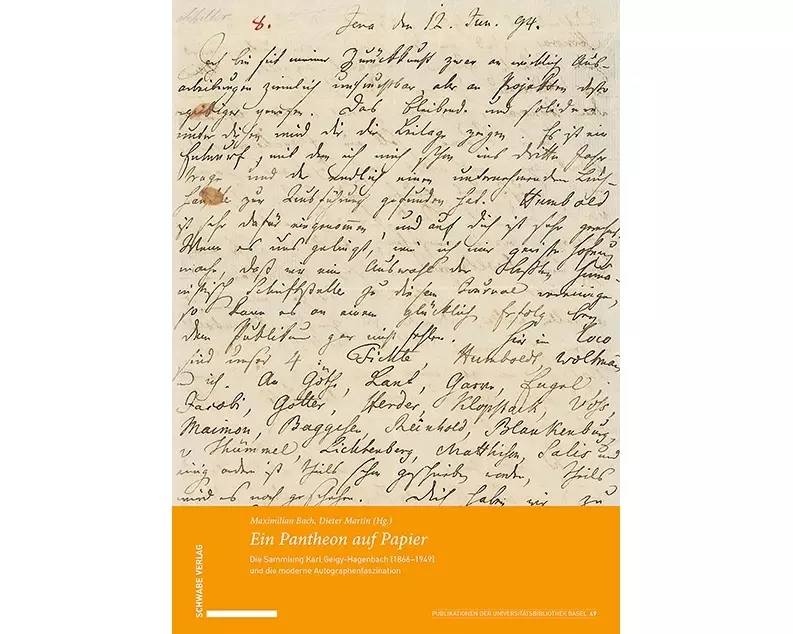 Schiller
8. Jena den 12. Jun. 94.
Ich bin seit meiner Zurückkunft zwar an wirklich Aus-
arbeitungen ziemlich unfruchtbar, aber an Projekten desto
ergiebiger gewesen. Das bleibendste und solideste
unter diesen wird dir die Beilage zeigen. Es ist ein
Entwurf, mit dem ich mich schon ins dritte Jahr
trage und der endlich einen unternehmenden Buch-
händler zur Ausführung gefunden hat. Humbold
ist sehr dafür eingenommen, und auf dich ist sehr gerechnet.
Wenn es uns gelingt, wie ich mir gewisse Hofnung
mache, daß wir eine Auswahl der besten huma-
nistisch Schriftsteller zu diesem Journal vereinigen,
so kann es an einem glücklich Erfolg bey
dem Publikum gar nicht fehlen. Hier in Loco
sind unser 4: Fichte, Humboldt, Woltmann
u ich. An Göthe, Kant, Garve, Engel,
Jacobi, Gotter, Herder, Klopstock, Voß,
Maimon, Baggesen, Reinhold, Blankenburg,
v Thümmel, Lichtenberg, Matthison, Salis und
einig andere ist theils schon geschrieben worden, theils
wird es noch geschehen. Dich haben wir zu
Maximilian Bach, Dieter Martin (Hg.)
Ein Pantheon auf Papier
Die Sammlung Karl Geigy-Hagenbach (1866–1949)
und die moderne Autographenfaszination
SCHWABE VERLAG
PUBLIKATIONEN DER UNIVERSITÄTSBIBLIOTHEK BASEL 49